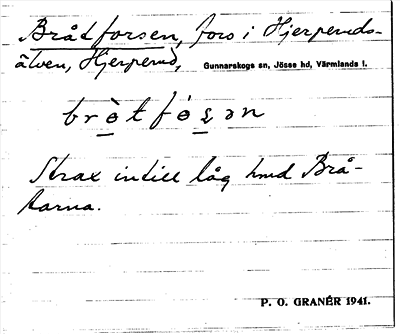 Bråtforsen, fors i Hjerperuds-
älven, Hjerperud, Gunnarskogs sn, Jösse hd, Värmlands l.
bròtfósən
Strax intill låg hmd Brå-
tarna.
P. O. GRANÉR 1941.